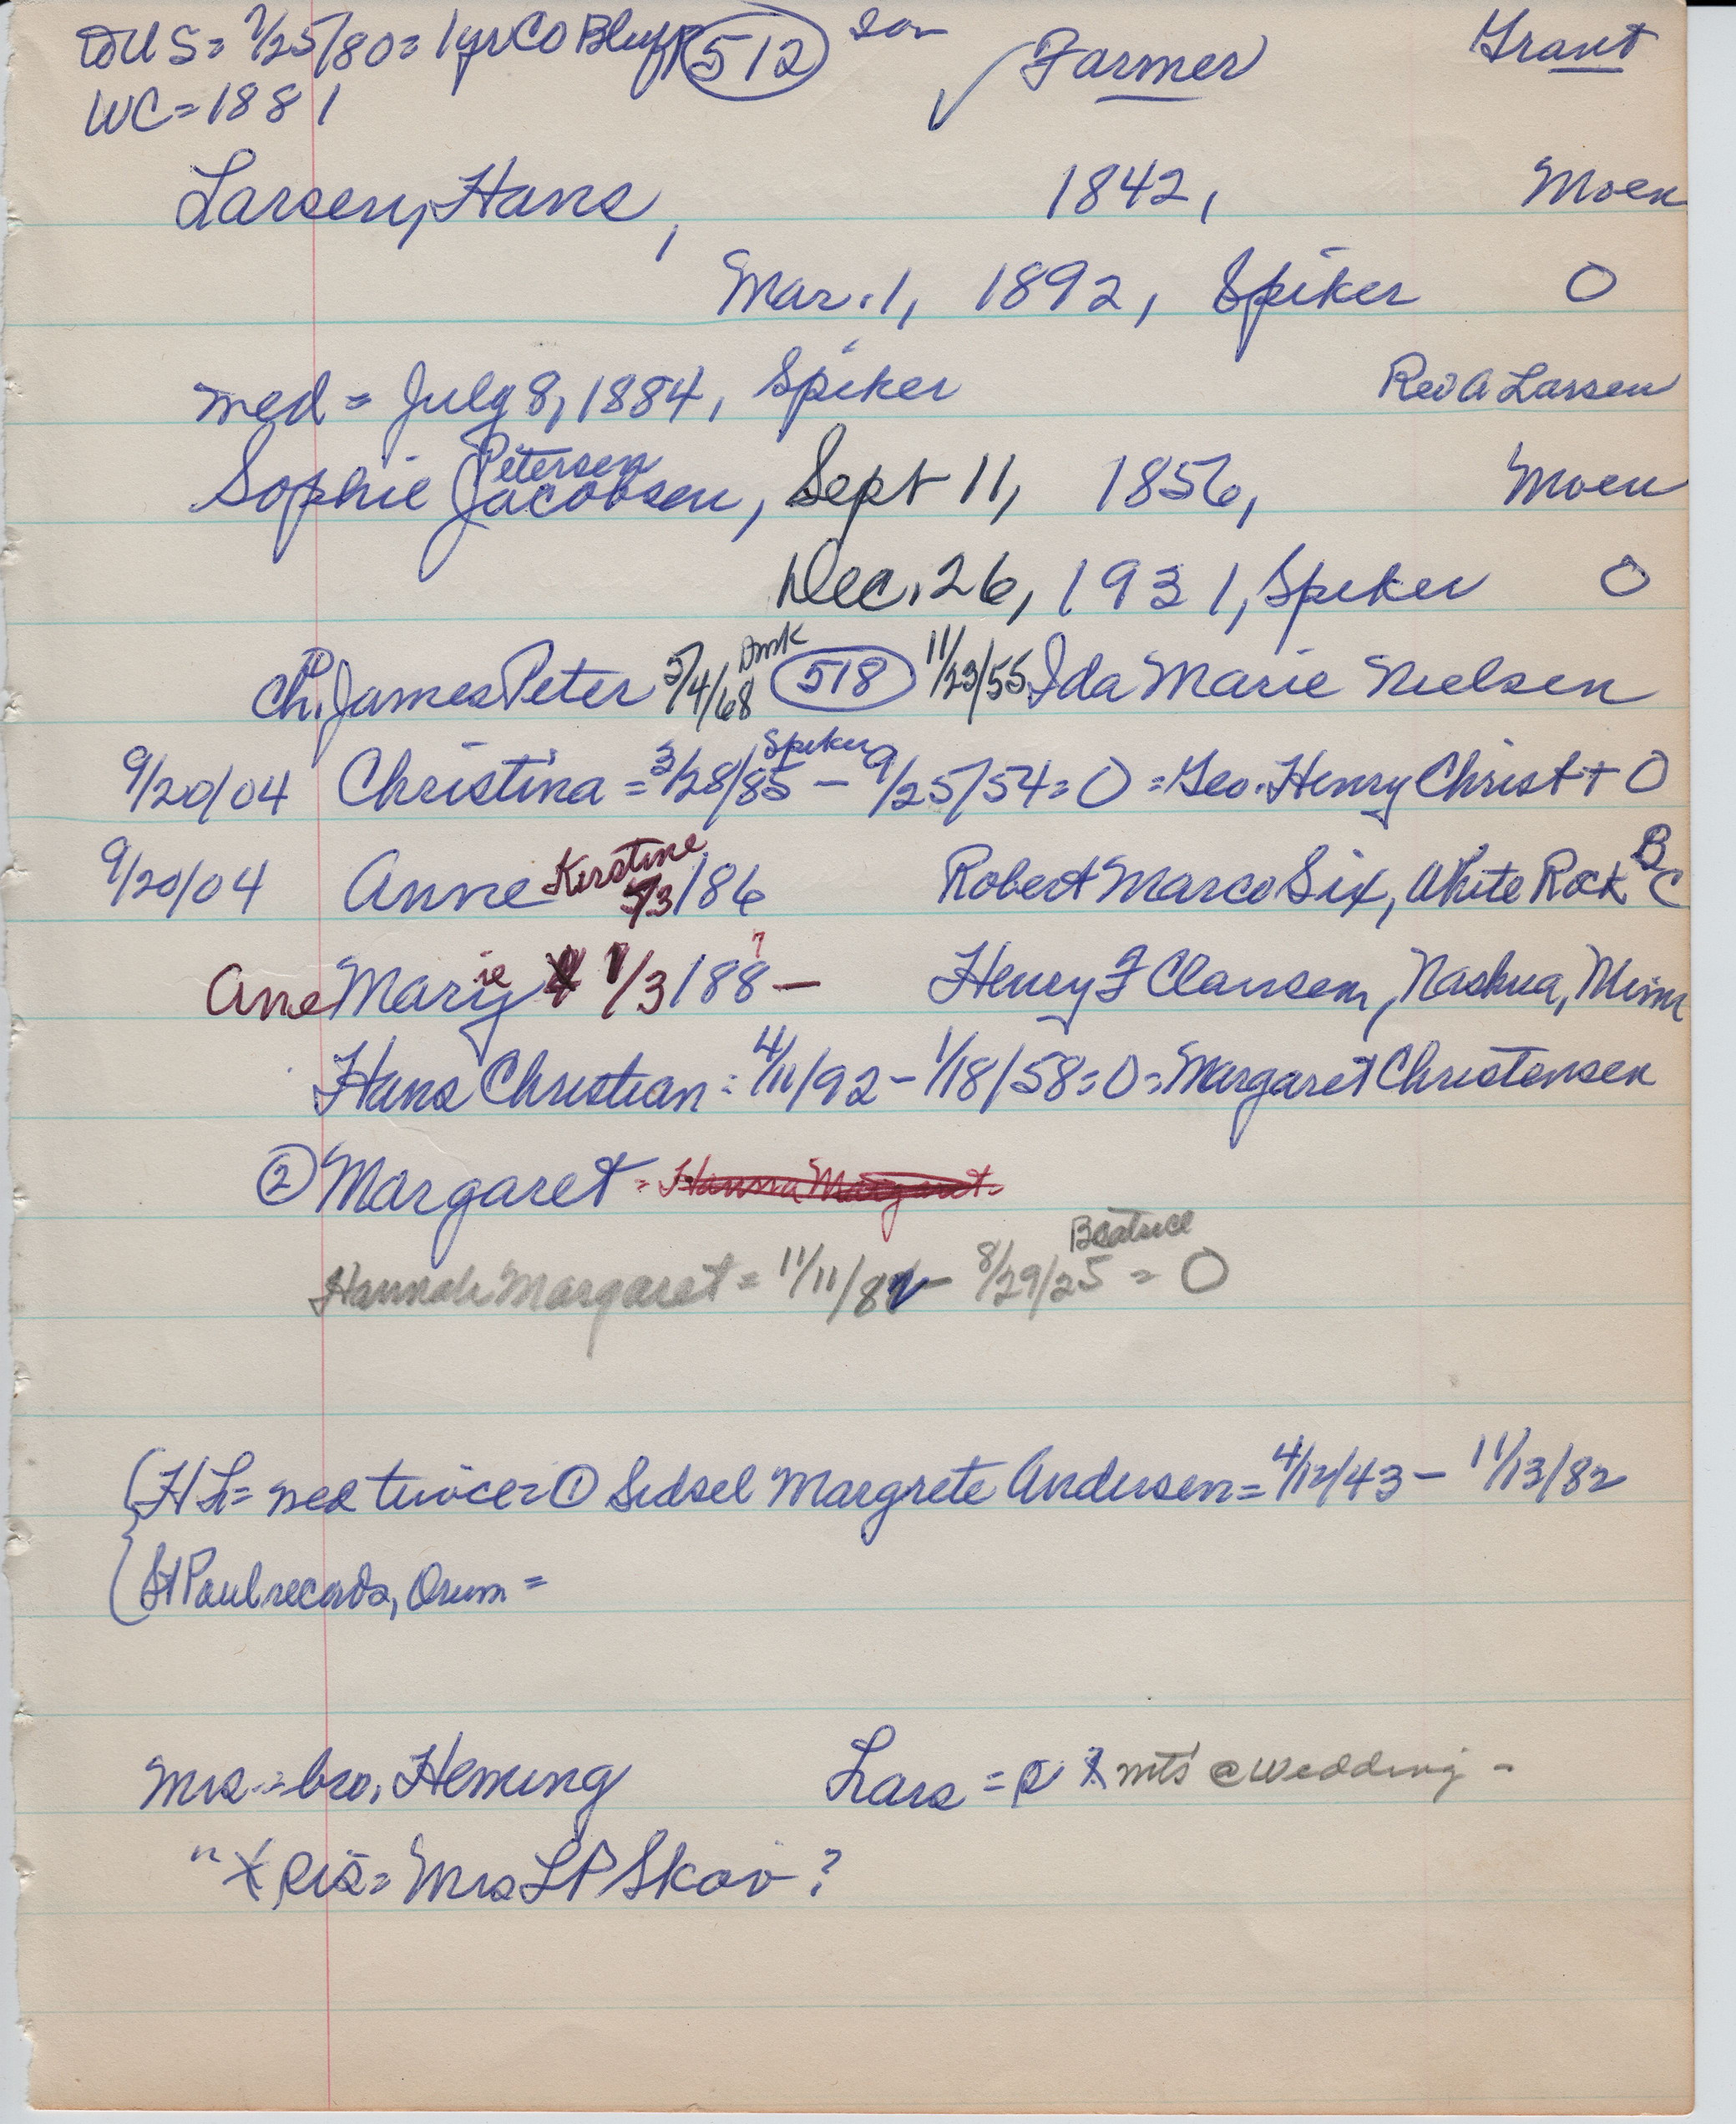 to US = 7/25/80 = 1 yr CO Bluff 512 son ✓ Farmer Grant
WC = 1881
Larsen, Hans, 1842, Moen
Mar. 1, 1892, Spiker O
med = July 8, 1884, Spiker Rev A Larsen
Petersen
Sophie Jacobsen, Sept 11, 1856, Moen
Dec. 26, 1931, Spiker O
ch. James Peter 5/4/68 Dmk 518 11/23/55 Ida Marie Nielsen
9/20/04 Christina = 3/28/85 Spiker - 9/25/54 = O = Geo. Henry Christt O
9/20/04 Anne Kirstine 5/3/86 Robert Marco Six, White Rock BC
Ane Marie 1/3/188? - Henry F Clausem, Nashua, Minn
Hans Christian = 4/11/92 - 1/18/58 = O = Margaret Christensen
② Margaret = Hanna Margaret
Hannah Margaret = 11/11/82 - 8/29/25 Beatrice = O
(HL = med twice = ① Sidsel Margrete Andersen = 4/12/43 - 11/13/82
(St Paul records, Orum =
Mrs = bro. Heming Lars = mts @ Wedding -
" sis = Mrs LP Skov ?